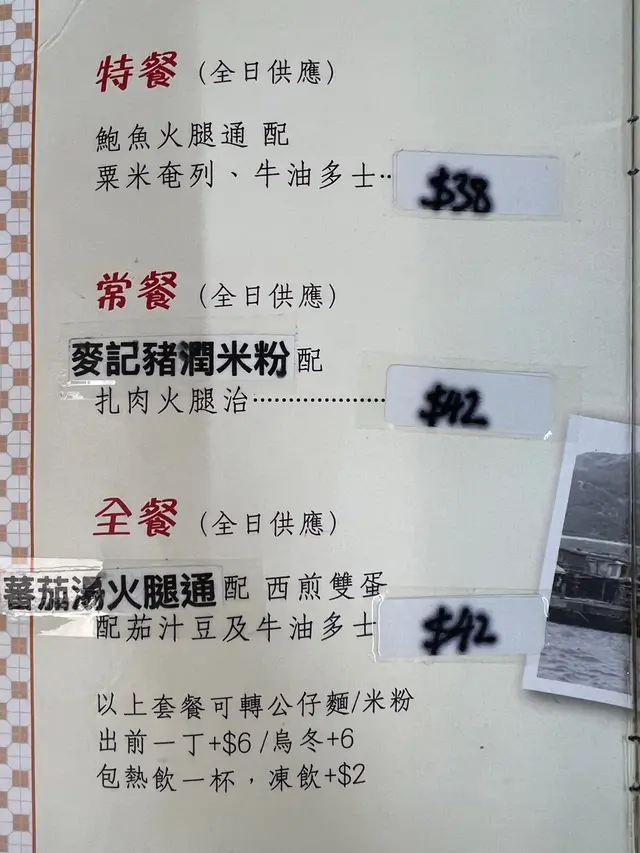 特餐 (全日供應)
鮑魚火腿通 配
粟米奄列、牛油多士..
$38
常餐 (全日供應)
麥記豬潤米粉 配
扎肉火腿治...................
$42
全餐 (全日供應)
蕃茄湯火腿通 配 西煎雙蛋
配茄汁豆及牛油多士
$42
以上套餐可轉公仔麵/米粉
出前一丁+$6 /烏冬+6
包熱飲一杯，凍飲+$2